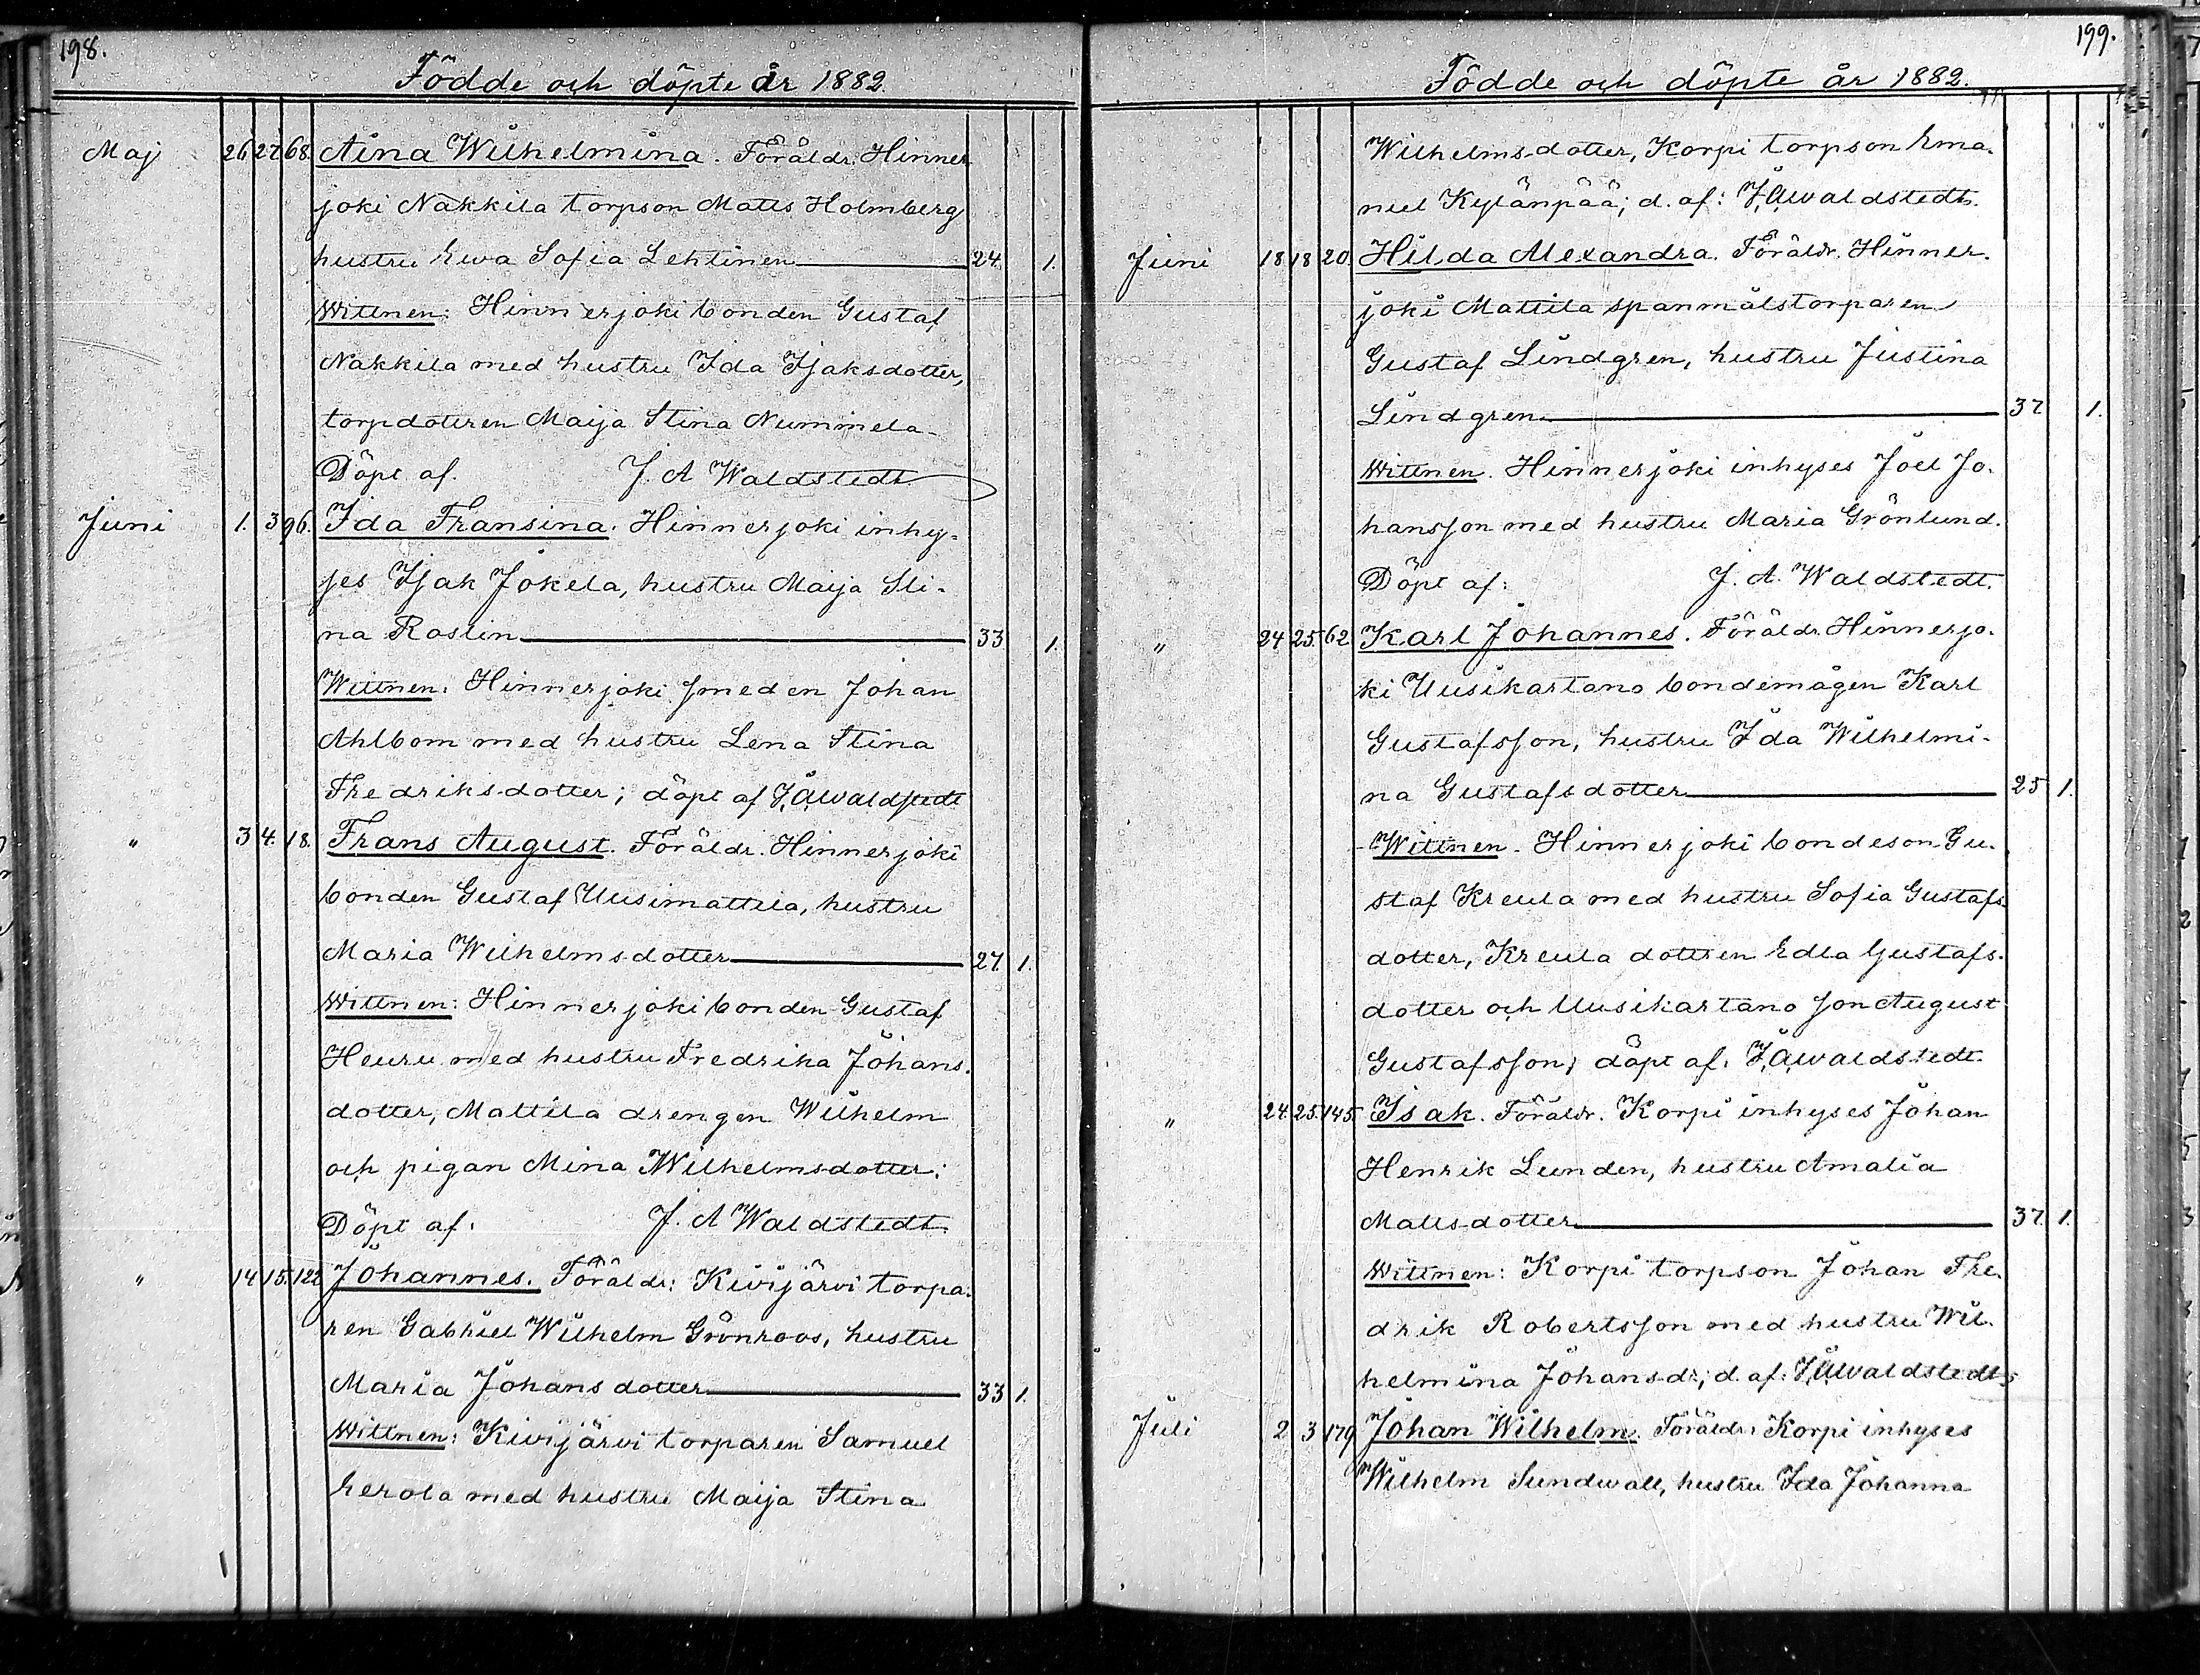 198.
Födde och döpte år 1882.
Maj 26 27 68. Aina Wilhelmina. Föräldr. Hinner
joki Nakkila torpson Matts Holmberg
hustru Ewa Sofia Lehtinen 24. 1.
Wittnen: Hinnerjoki bonden Gustaf
Nakkila med hustru Ida Isaksdotter,
torpdottren Maija Stina Nummela.
Döpt af. J. A Waldstedt
Juni 1. 3 96. Ida Fransina. Hinnerjoki inhy-
ses Isak Jokela, hustru Maija Sti-
na Roslin 33 1.
Wittnen: Hinnerjoki smeden Johan
Ahlbom med hustru Lena Stina
Fredriksdotter; döpt af J. A Waldstedt
" 3 4. 18. Frans August. Föräldr. Hinnerjoki
bonden Gustaf Uusimattila, hustru
Maria Wilhelmsdotter 27. 1.
Wittnen: Hinnerjoki bonden Gustaf
Heuru med hustru Fredrika Johans.
dotter, Mattila drengen Wilhelm
och pigan Mina Wilhelmsdotter:
Döpt af: J. A Waldstedt.
" 14 15. 122 Johannes. Föräldr: Kivijärvi torpa.
ren Gabriel Wilhelm Grönroos, hustru
Maria Johansdotter 33 1.
Wittnen: Kivijärvi torparen Samuel
Eerola med hustru Maija Stina
199.
Födde och döpte år 1882.
Wilhelms-dotter, Korpi torpson Ema.
nuel Kylänpää; d. af: J. A Waldstedt.
Juni 18 18 20. Hilda Alexandra. Föräldr. Hinner.
joki Mattila spanmålstorparen
Gustaf Lindgren, hustru Justina
Lindgren. 37 1.
Wittnen. Hinnerjoki inhyses Joel Jo.
hansson med hustru Maria Grönlund.
Döpt af: J. A. Waldstedt.
" 24 25. 62. Karl Johannes. Föräldr. Hinnerjo.
ki Uusikartano bondemågen Karl
Gustafsson, hustru Ida Wilhelmi-
na Gustafsdotter 25 1.
Wittnen. Hinnerjoki bondeson Gu.
staf Kreula med hustru Sofia Gustafs.
dotter, Kreula dottren Edla Gustafs.
dotter och Uusikartano son August
Gustafsson; döpt af: J. A Waldstedt.
" 24. 25. 145. Isak. Föräldr. Korpi inhyses Johan
Henrik Lunden, hustru Amalia
Mattsdotter 37. 1.
Wittnen: Korpi torpson Johan Fre.
drik Robertsson med hustru Wil.
helmina Johansdr; d. af: J. A Waldstedt.
Juli 2 3 179 Johan Wilhelm. Föräldr: Korpi inhyses
Wilhelm Sundwall, hustru Ida Johanna